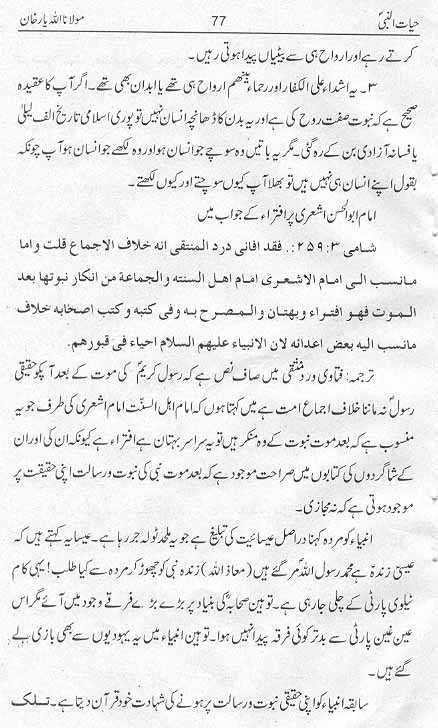 حیات النبیؐ 77 مولانا اللہ یار خان
کرتے رہے اور ارواح ہی سے بیٹیاں پیدا ہوتی رہیں۔
۳۔ یہ اشداء علی الکفار اور رحماء بینھم ارواح ہی تھے یا ابدان بھی تھے۔ اگر آپ کا عقیدہ
صحیح ہے کہ نبوت صفت روح کی ہے اور یہ بدن کا ڈھانچہ انسان نہیں تو پوری اسلامی تاریخ الف لیلیٰ
یا فسانہ آزادی بن کے رہ گئی۔ مگر یہ باتیں وہ سوچے جو انسان ہو اور وہ لکھے جو انسان ہو آپ چونکہ
بقول اپنے انسان ہی نہیں ہیں تو بھلا آپ کیوں سوچتے اور کیوں لکھتے۔
امام ابو الحسن اشعری پر افتراء کے جواب میں
شامی ۳:۲۵۹:. فقد افانی درد المنتقی انه خلاف الاجماع قلت واما
مانسب الی امام الاشعری امام اهل السنته والجماعة من انکار نبوتها بعد
الموت فهو افتراء وبهتان والمصرح به وفی کتبه وکتب اصحابه خلاف
مانسب الیه بعض اعدائه لان الانبیاء علیهم السلام احیاء فی قبورهم.
ترجمہ: فتاوی ورد منتقی میں صاف نص ہے کہ رسول کریمؐ کی موت کے بعد آپکو حقیقی
رسول نہ ماننا خلاف اجماع امت ہے میں کہتا ہوں کہ امام اہل السنّت امام اشعری کی طرف جو یہ
منسوب ہے کہ بعد موت نبوت کے وہ منکر ہیں تو یہ سراسر بہتان ہے افتراء ہے کیونکہ ان کی اور ان
کے شاگردوں کی کتابوں میں صراحت موجود ہے کہ بعد موت نبی کی نبوت و رسالت اپنی حقیقت پر
موجود ہوتی ہے کہ نہ مجازی۔
انبیاء کو مردہ کہنا دراصل عیسائیت کی تبلیغ ہے جو یہ ملحد ٹولہ جر رہا ہے۔ عیسایہ کہتے ہیں کہ
عیسیٰ زندہ ہے محمد رسول اللہؐ مر گئے ہیں (معاذ اللہ) زندہ نبی کو چھوڑ کر مردہ سے کیا طلب! یہی کام
نیلوی پارٹی کے چلی جا رہی ہے۔ توہین صحابہؓ کی بنیاد پر بڑے بڑے فرقے وجود میں آئے مگر اس
عین غین پارٹی سے بدتر کوئی فرقہ پیدا نہیں ہوا۔ توہین انبیاء میں یہ یہودیوں سے بھی بازی لے
گئے ہیں۔
سابقہ انبیاء کو اپنی حقیقی نبوت و رسالت پر ہونے کی شہادت خود قرآن دیتا ہے۔ تلک